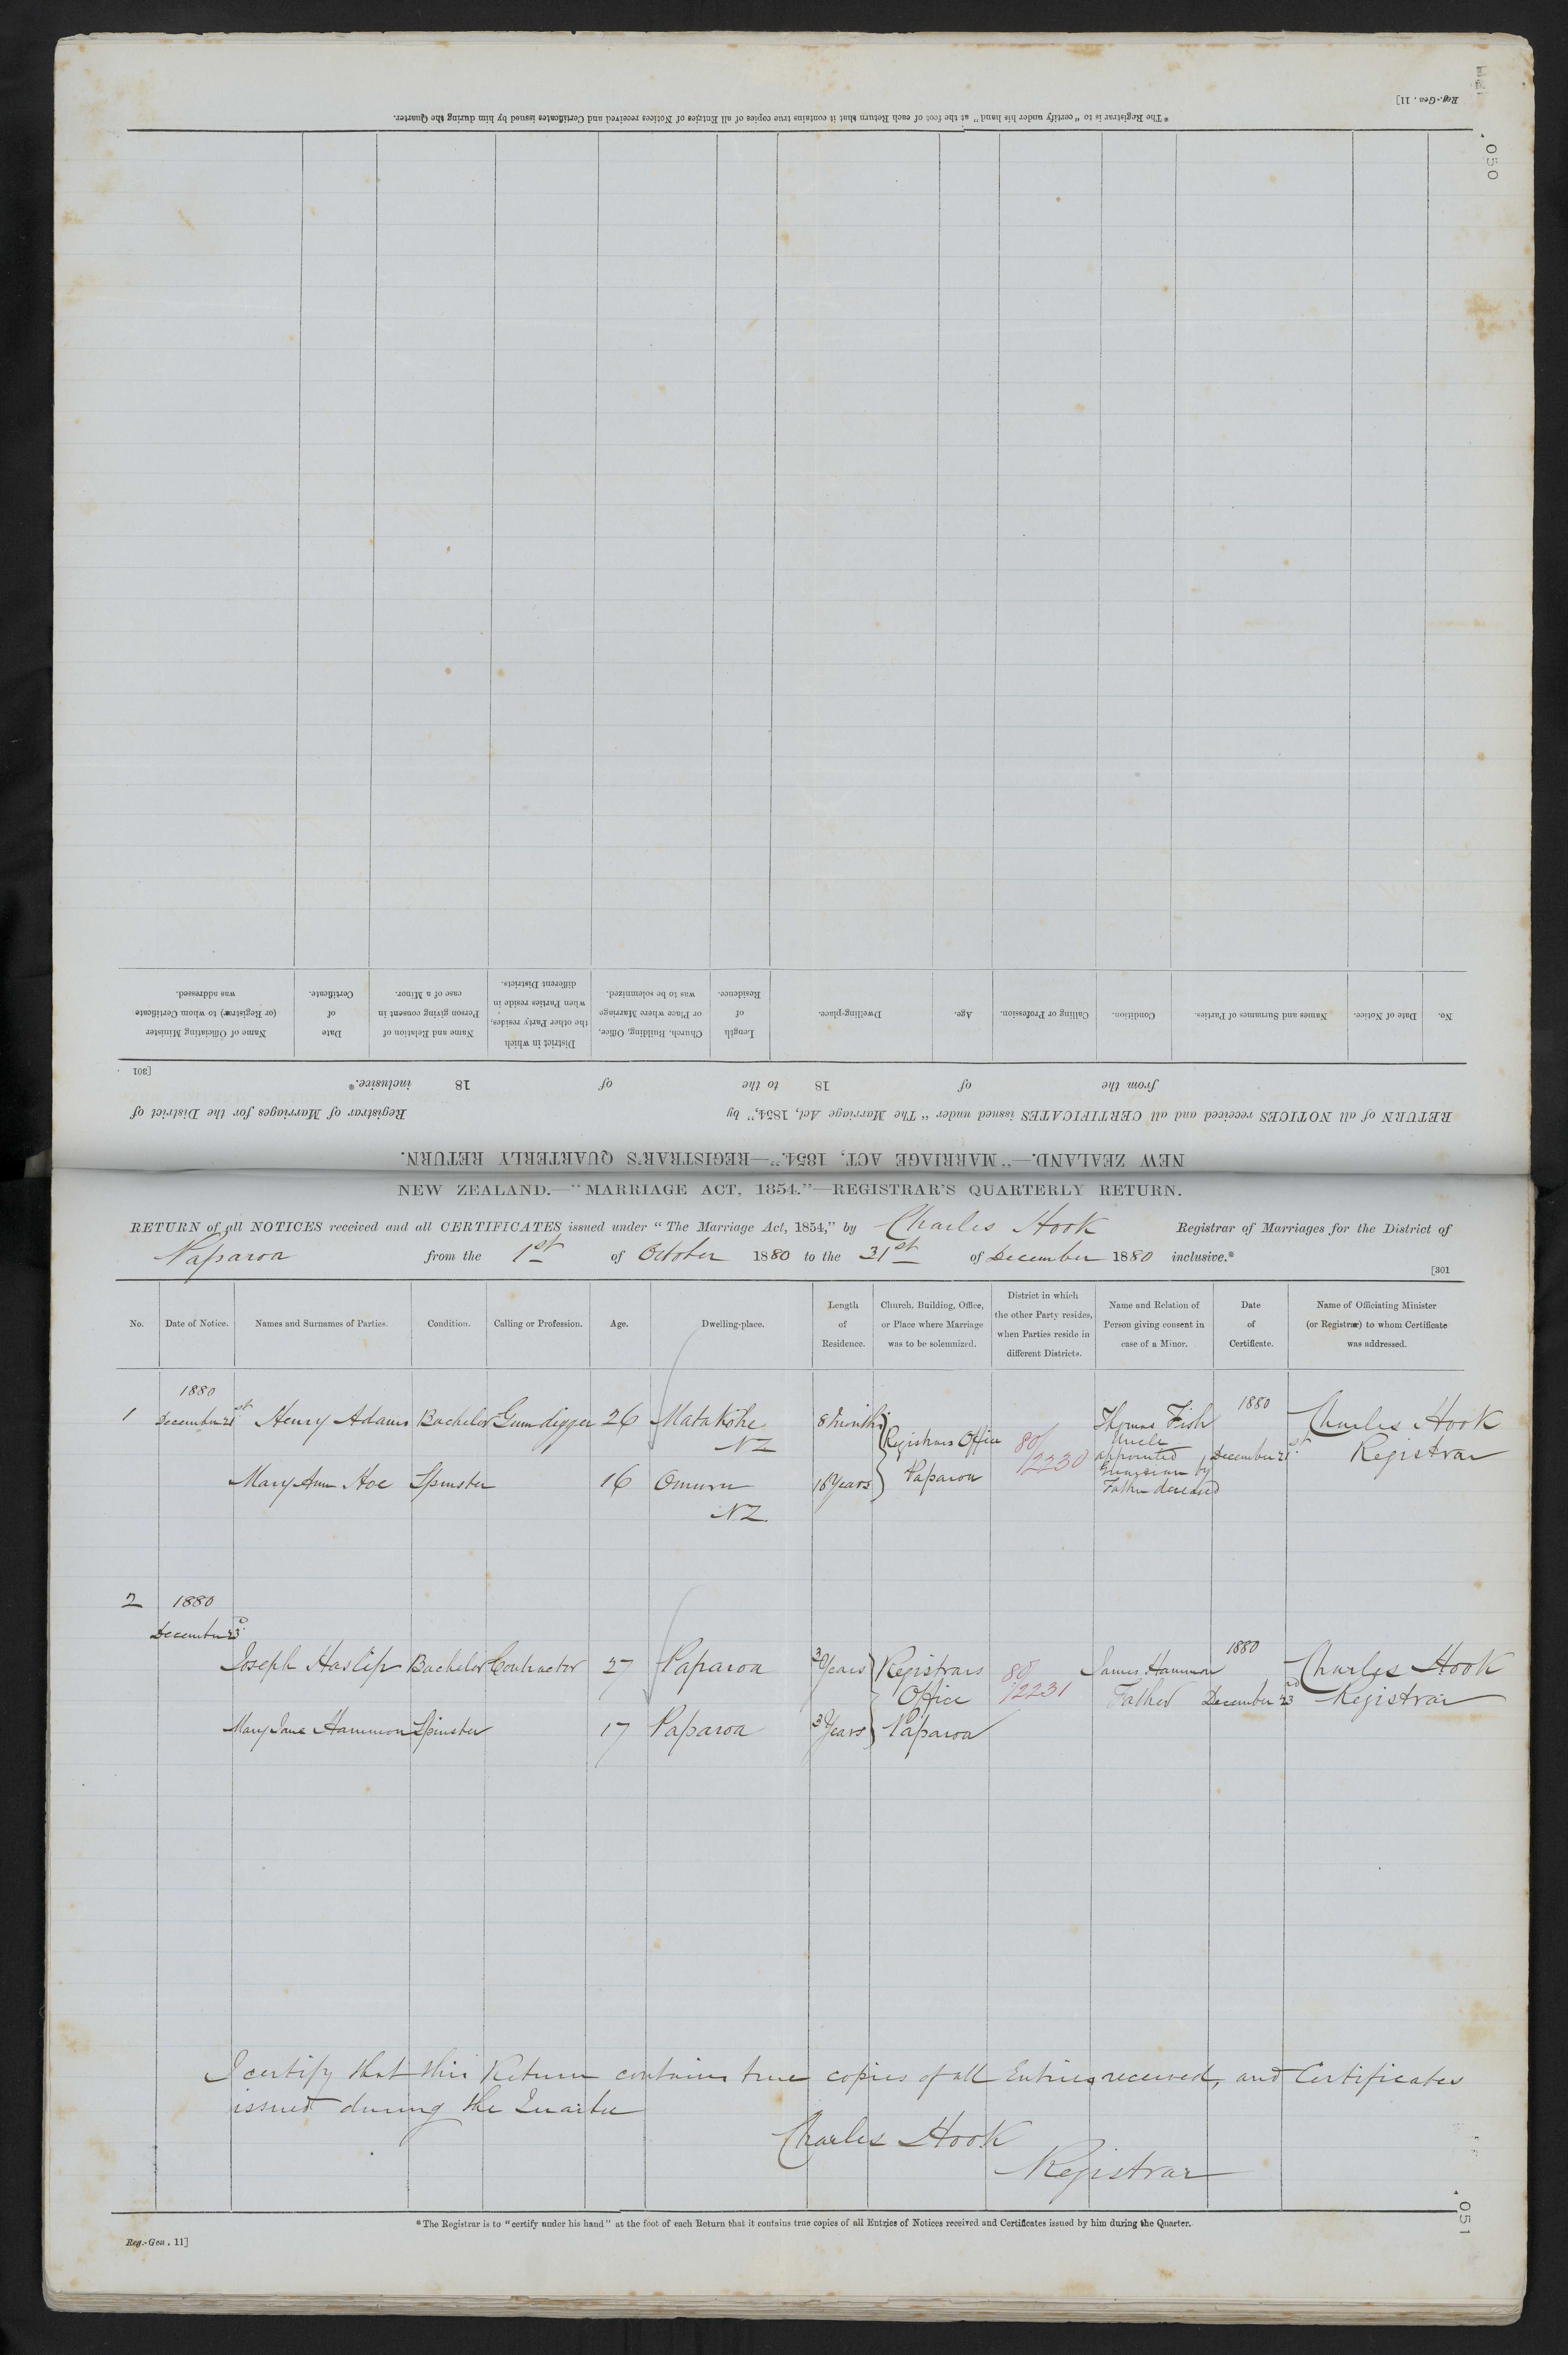 Reg.-Gen. 11]
050
*The Registrar is to "certify under his hand" at the foot of each Return that it contains true copies of all Entries of Notices received and Certificates issued by him during the Quarter.
No. Date of Notice. Names and Surnames of Parties. Condition. Calling or Profession. Age. Dwelling-place. Length of Residence. Church, Building, Office, or Place where Marriage was to be solemnized. District in which the other Party resides, when Parties reside in different Districts. Name and Relation of Person giving consent in case of a Minor. Date of Certificate. Name of Officiating Minister (or Registrar) to whom Certificate was addressed.
[301
from the of 18 to the of 18 inclusive.*
RETURN of all NOTICES received and all CERTIFICATES issued under "The Marriage Act, 1854," by Registrar of Marriages for the District of
NEW ZEALAND.—"MARRIAGE ACT, 1854."—REGISTRAR'S QUARTERLY RETURN.
NEW ZEALAND.—"MARRIAGE ACT, 1854."—REGISTRAR'S QUARTERLY RETURN.
RETURN of all NOTICES received and all CERTIFICATES issued under "The Marriage Act, 1854," by Charles Hook Registrar of Marriages for the District of
Paparoa from the 1st of October 1880 to the 31st of December 1880 inclusive.*
[301
No. Date of Notice. Names and Surnames of Parties. Condition. Calling or Profession. Age. Dwelling-place. Length of Residence. Church, Building, Office, or Place where Marriage was to be solemnized. District in which the other Party resides, when Parties reside in different Districts. Name and Relation of Person giving consent in case of a Minor. Date of Certificate. Name of Officiating Minister (or Registrar) to whom Certificate was addressed.
1880 1880
1 December 21st Henry Adams Bachelor Gum digger 26 Matakohe 8 Months Thomas Fish Charles Hook
NZ Registrars Office 80/2230 Uncle appointed December 21st Registrar
Mary Ann Hoe Spinster 16 Omuru 16 Years Paparoa by
NZ. Father deceased
2 1880
December 23d 1880
Joseph Haslip Bachelor Contractor 27 Paparoa 3 Years Registrars James Hammon Charles Hook
Office 80/2231 Father December 23rd Registrar
Mary Jane Hammon Spinster 17 Paparoa 3 Years Paparoa
I certify that this Return contains true copies of all Entries received, and Certificates
issued during the Quarter
Charles Hook
Registrar
*The Registrar is to "certify under his hand" at the foot of each Return that it contains true copies of all Entries of Notices received and Certificates issued by him during the Quarter.
Reg.-Gen. 11]
051